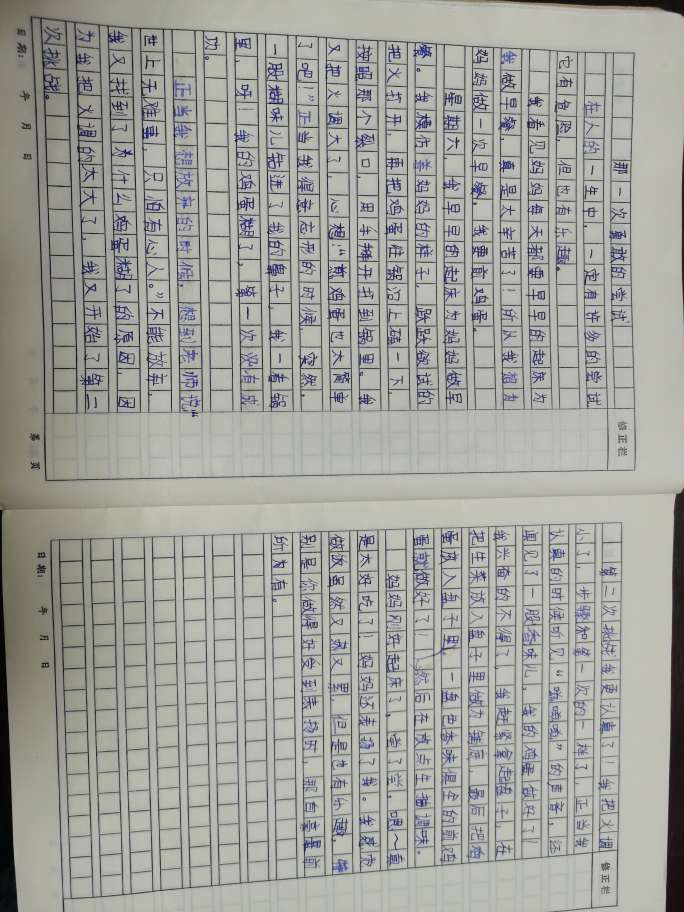 那一次勇敢的尝试
在人的一生中,一定有许多的尝试
它有危险,但也有乐趣。
我看见妈妈每天都要早早的起床为
我做早餐,真是太辛苦了!所以我想为
妈妈做一次早餐。我要煎鸡蛋。
星期六,我早早的起床为妈妈做早
餐。我模仿着妈妈的样子,跃跃欲试的
把火打开,再把鸡蛋往锅沿上磕一下,
按照那个裂口,用手掰开打到锅里。我
又把火调大了,心想:“煎鸡蛋也太简单
了吧!”正当我得意忘形的时候,突然,
一股糊味儿钻进了我的鼻子,我一看锅
里,呀!我的鸡蛋糊了,第一次没有成
功。
正当我想放弃的时候,想到老师说“
世上无难事,只怕有心人。”不能放弃,
我又找到了为什么鸡蛋糊了的原因,因
为我把火调的太大了,我又开始了第二
次挑战。
修正栏
第 页
日期: 年 月 日
第二次挑战我更认真了!我把火调
小了,步骤和第一次的一样了,正当我
认真的时候听见“嗞嗞嗞”的声音,还
闻见了一股香味儿,我的鸡蛋做好了!
我兴奋的不得了,我赶紧拿起盘子,在
把生菜放入盘子里做为铺底,最后把鸡
蛋放入盘子里。一盘色香味俱全的煎鸡
蛋就做好了!然后在放点生抽调味。
妈妈刚好起床了,尝了尝,嗯~真
是太好吃了!妈妈还表扬了我。我感为
做饭虽然又热又累,但是也有乐趣,特
别是你做得好受到表扬时,那自豪是前
所为有。
修正栏
日期: 年 月 日